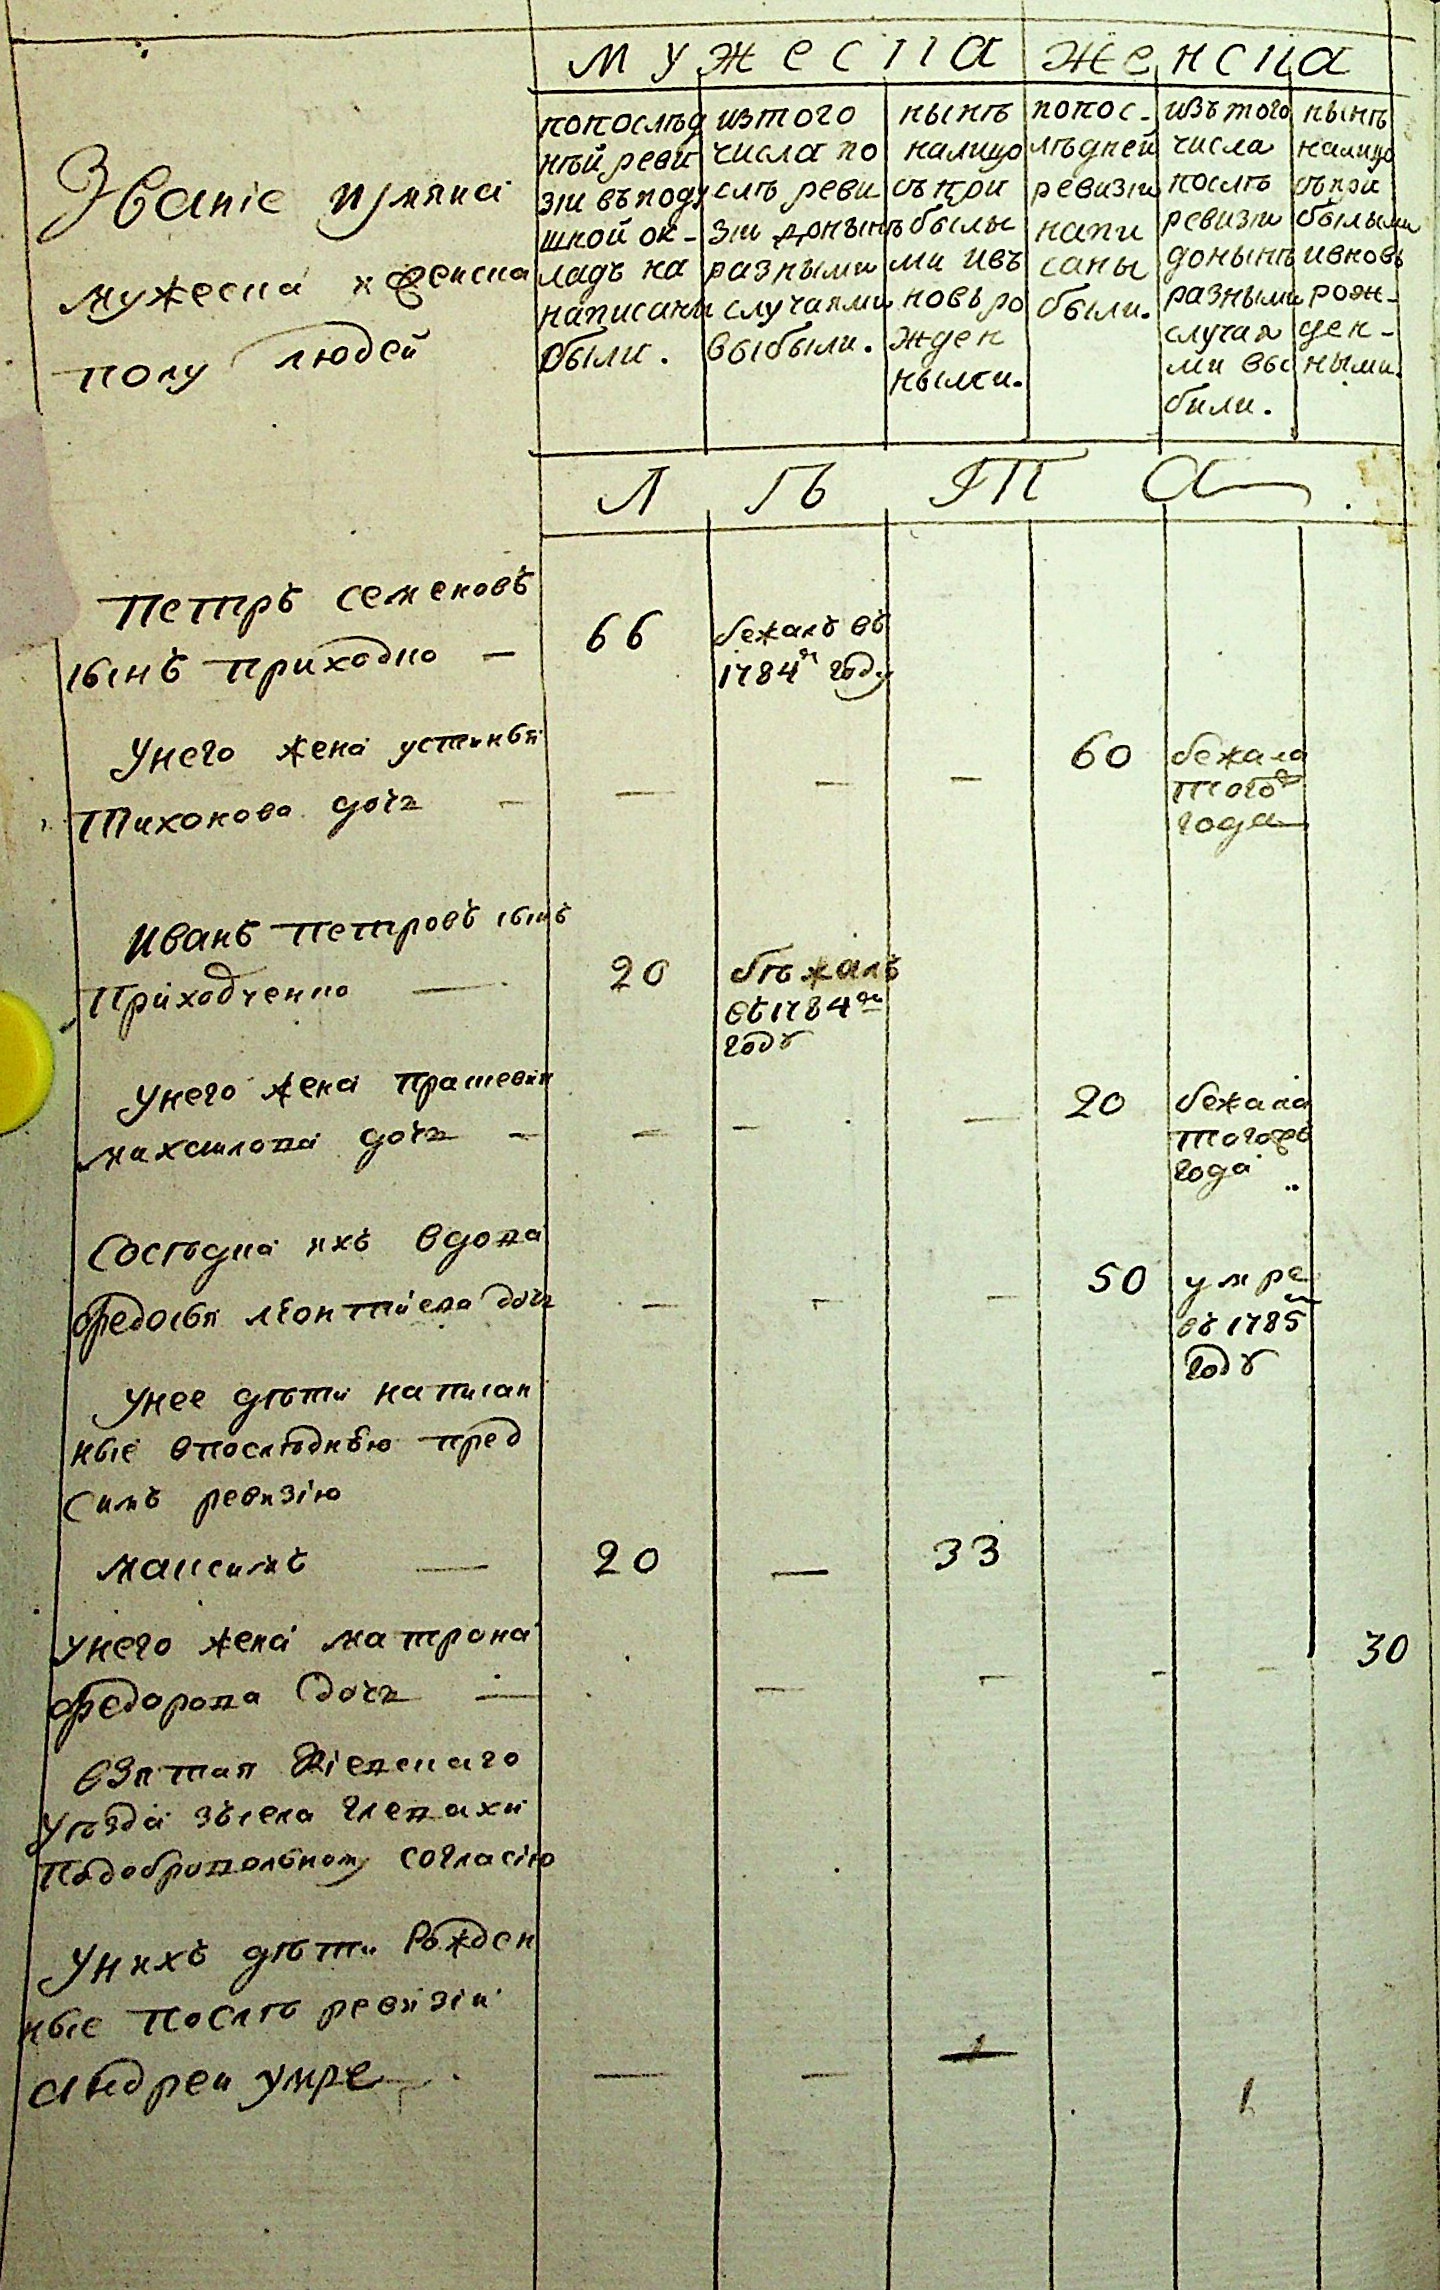 мужеска женска
Званіе и имяна
мужеска и женска
полу людей
попослѣд
нѣй реви
зіи въподу
шной ок-
ладъ на
написаны
были.
изтого
числа по
слѣ реви
зіи донынѣ
разными
случаями
выбыли.
нынѣ
налицо
съ при
былы
ми ивъ
новь ро
жден
ными.
попос-
лѣдней
ревизіи
напи
саны
были.
изътого
числа
послѣ
ревизіи
донынѣ
разными
случая
ми вы
били.
нынѣ
налицо
съ при
былыми
ивновь
рож-
ден-
ными.
Л Ѣ Т А
Петръ Семеновъ
сынъ приходко — 66 бежалъ въ
1784м году
Унего жена устинья 60 бежала
Тихонова дочь — — — — того ж
года
Иванъ Петровъ сынъ
Приходченко — 20 бѣжалъ
въ 1784м
году
Унего жена Прасковья 20 бежала
михайлова дочь — — — — тогожъ
года
Сосѣдка ихъ вдова 50 умре
федосья леонтиева дочь — — — въ 1785м
году
Унее дѣти написан
ные впослѣднѣю пред
симъ ревизію
максимъ — 20 — 33
унего жена матрона 30
федорова дочь — — — — —
взятая Кіевскаго
уѣзда зъ села Глевахи
подобровольному согласію
Унихъ дѣти рожден
ные послѣ ревизіи
андреи умре — — — 1
1